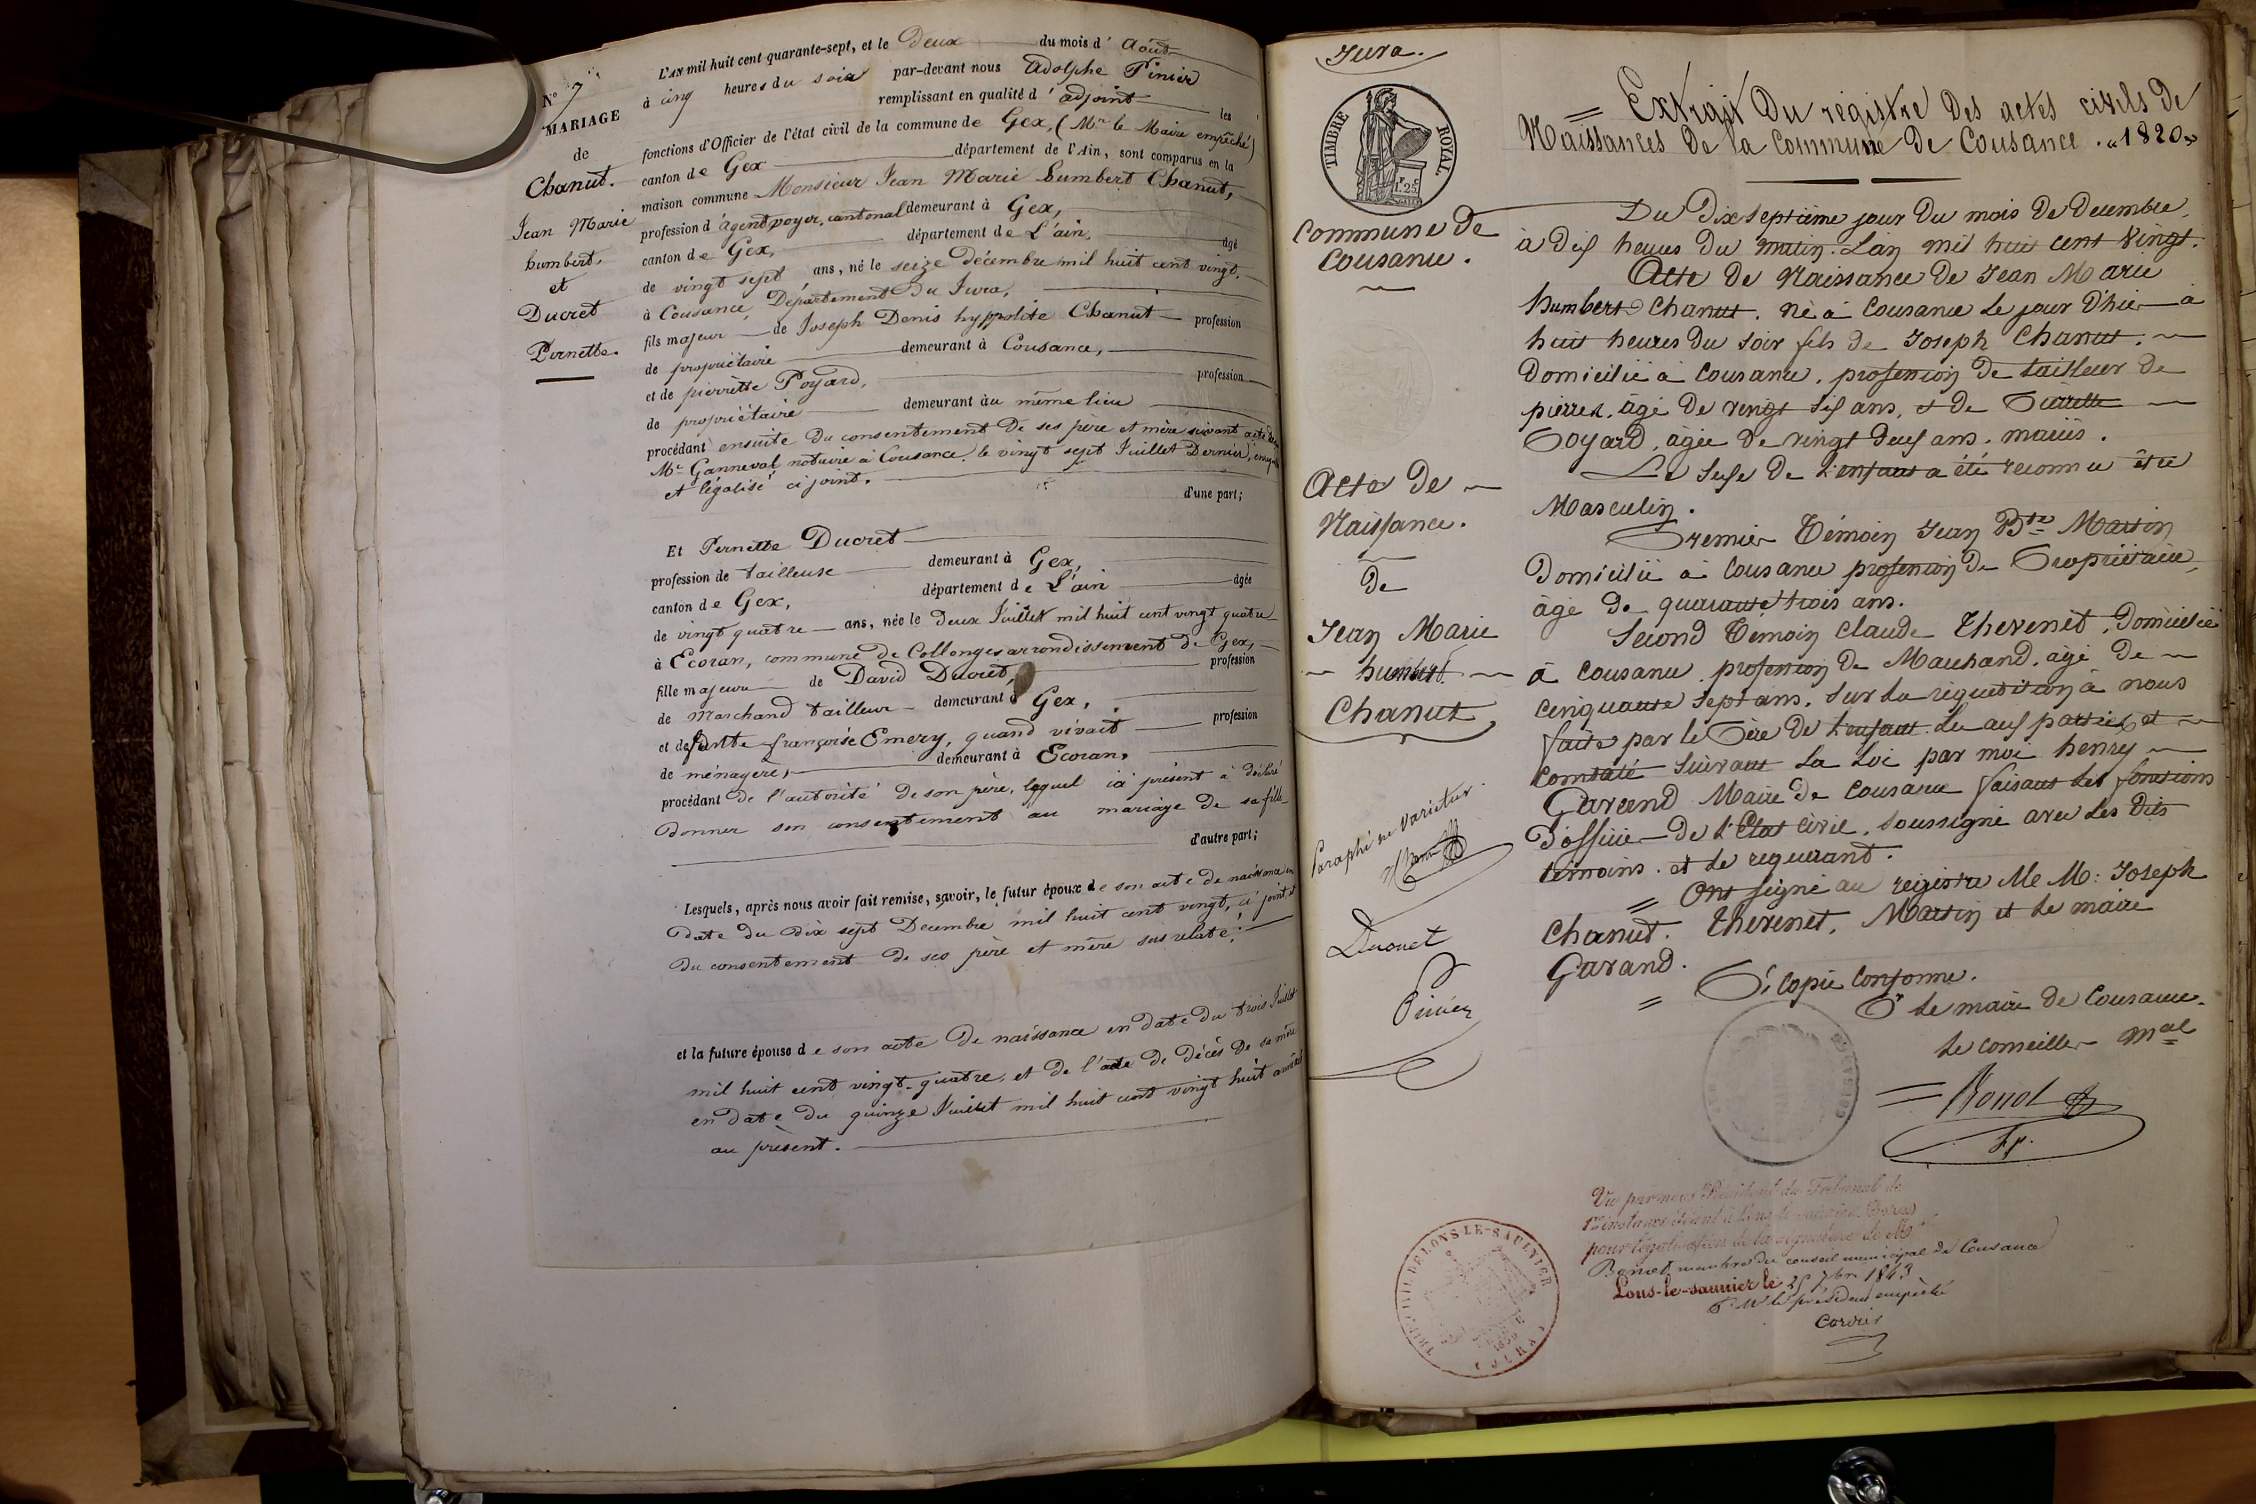 N° 7
MARIAGE
de
Chanut.
Jean Marie
humbert.
et
Ducret
Pernette.
L'AN mil huit cent quarante-sept, et le Deux du mois d' Août
à cinq heures du soir par-devant nous Adolphe Pinier
remplissant en qualité d' adjoint les
fonctions d'Officier de l'état civil de la commune de Gex, (Mr le Maire empêché)
canton de Gex département de l'Ain, sont comparus en la
maison commune Monsieur Jean Marie humbert Chanut,
profession d'agent voyer cantonal demeurant à Gex,
canton de Gex, département de L'ain, âgé
de vingt sept ans, né le seize décembre mil huit cent vingt,
à Cousance, Département du Jura,
fils majeur de Joseph Denis hyppolite Chanut profession
de propriétaire demeurant à Cousance,
et de pierrètte Poyard, profession
de propriétaire demeurant au même lieu
procédant ensuite du consentement de ses père et mère suivant acte
Mc Ganneval notaire à Cousance, le vingt sept Juillet Dernier,
et légalisé ci joint. d'une part;
Et Pernette Ducret
profession de tailleuse demeurant à Gex,
canton de Gex, département de L'ain âgée
de vingt quatre ans, née le deux Juillet mil huit cent vingt quatre
à Ecoran, commune de Collonges arrondissement de Gex,
fille majeure de David Ducret, profession
de Marchand tailleur demeurant à Gex,
et de funte françoise Emery, quand vivait profession
de ménagère, demeurant à Ecoran,
procédant de l'autorité de son père, lequel ici présent à déclaré
donner son consentement au mariage de sa fille
d'autre part;
Lesquels, après nous avoir fait remise, savoir, le futur époux de son acte de naissance en
date du dix sept Decembre mil huit cent vingt, ci joint, et
du consentement de ses père et mère sus relaté;
et la future épouse de son acte de naissance en date du trois Juillet
mil huit cent vingt-quatre, et de l'acte de décès de sa mère
en date du quinze Juillet mil huit cent vingt huit
au présent.
Jura.
TIMBRE ROYAL.
1F.25c
Commune de
Cousance.
Acte de
Naissance.
de
Jean Marie
humbert
Chanut
Paraphé ne varietur
Ducret
Pinier
Extrait Du régistre Des actes civils de
Naissances de la Commune de Cousance. "1820"
Du Dix Septième jour Du mois De Decembre,
à dix heures du matin. L'an mil huit cent Vingt.
Acte De Naissance De Jean Marie
humbert Chanut. né à Cousance le jour D'hier à
huit heures Du soir fils de Joseph Chanut.
Domicilié à Cousance, profession De tailleur De
pierres, âgé De vingt six ans, et De Pierrette
Poyard, âgée de vingt deux ans. mariés.
Le Sexe De L'enfant a été reconnu être
Masculin.
Premier Témoin Jean Bte Martin
Domicilié à Cousance profession De Propriétaire,
âgé De quarante trois ans.
Second Témoin Claude Thevenet, Domicilié
à Cousance, profession De Marchand, âgé De
cinquante sept ans. Sur La réquisition à nous
faite par le Père De L'enfant. Lu aux parties et
Constaté Suivant La Loi par moi henry
Garand Maire De Cousance faisant les fonctions
D'officier De L'Etat Civil, Soussigné avec Les Dits
témoins. et Le requerant.
Ont signé au régistre Me M: Joseph
Chanut. Thevenet, Martin et Le maire
Garand.
Pr copie conforme.
Pr Le maire De Cousance.
Le Conseiller Mal
Fr.
Vu par nous Président du Tribunal de
1re instance séant à Lons-le-Saunier (Jura)
pour légalisation de la signature de Mr
membre du conseil municipal de Cousance
Lons-le-saunier le 25 7bre 1843
Pr Mr le président empêché
Cordier
TRIBUNAL DE LONS-LE-SAULNIER
(JURA)